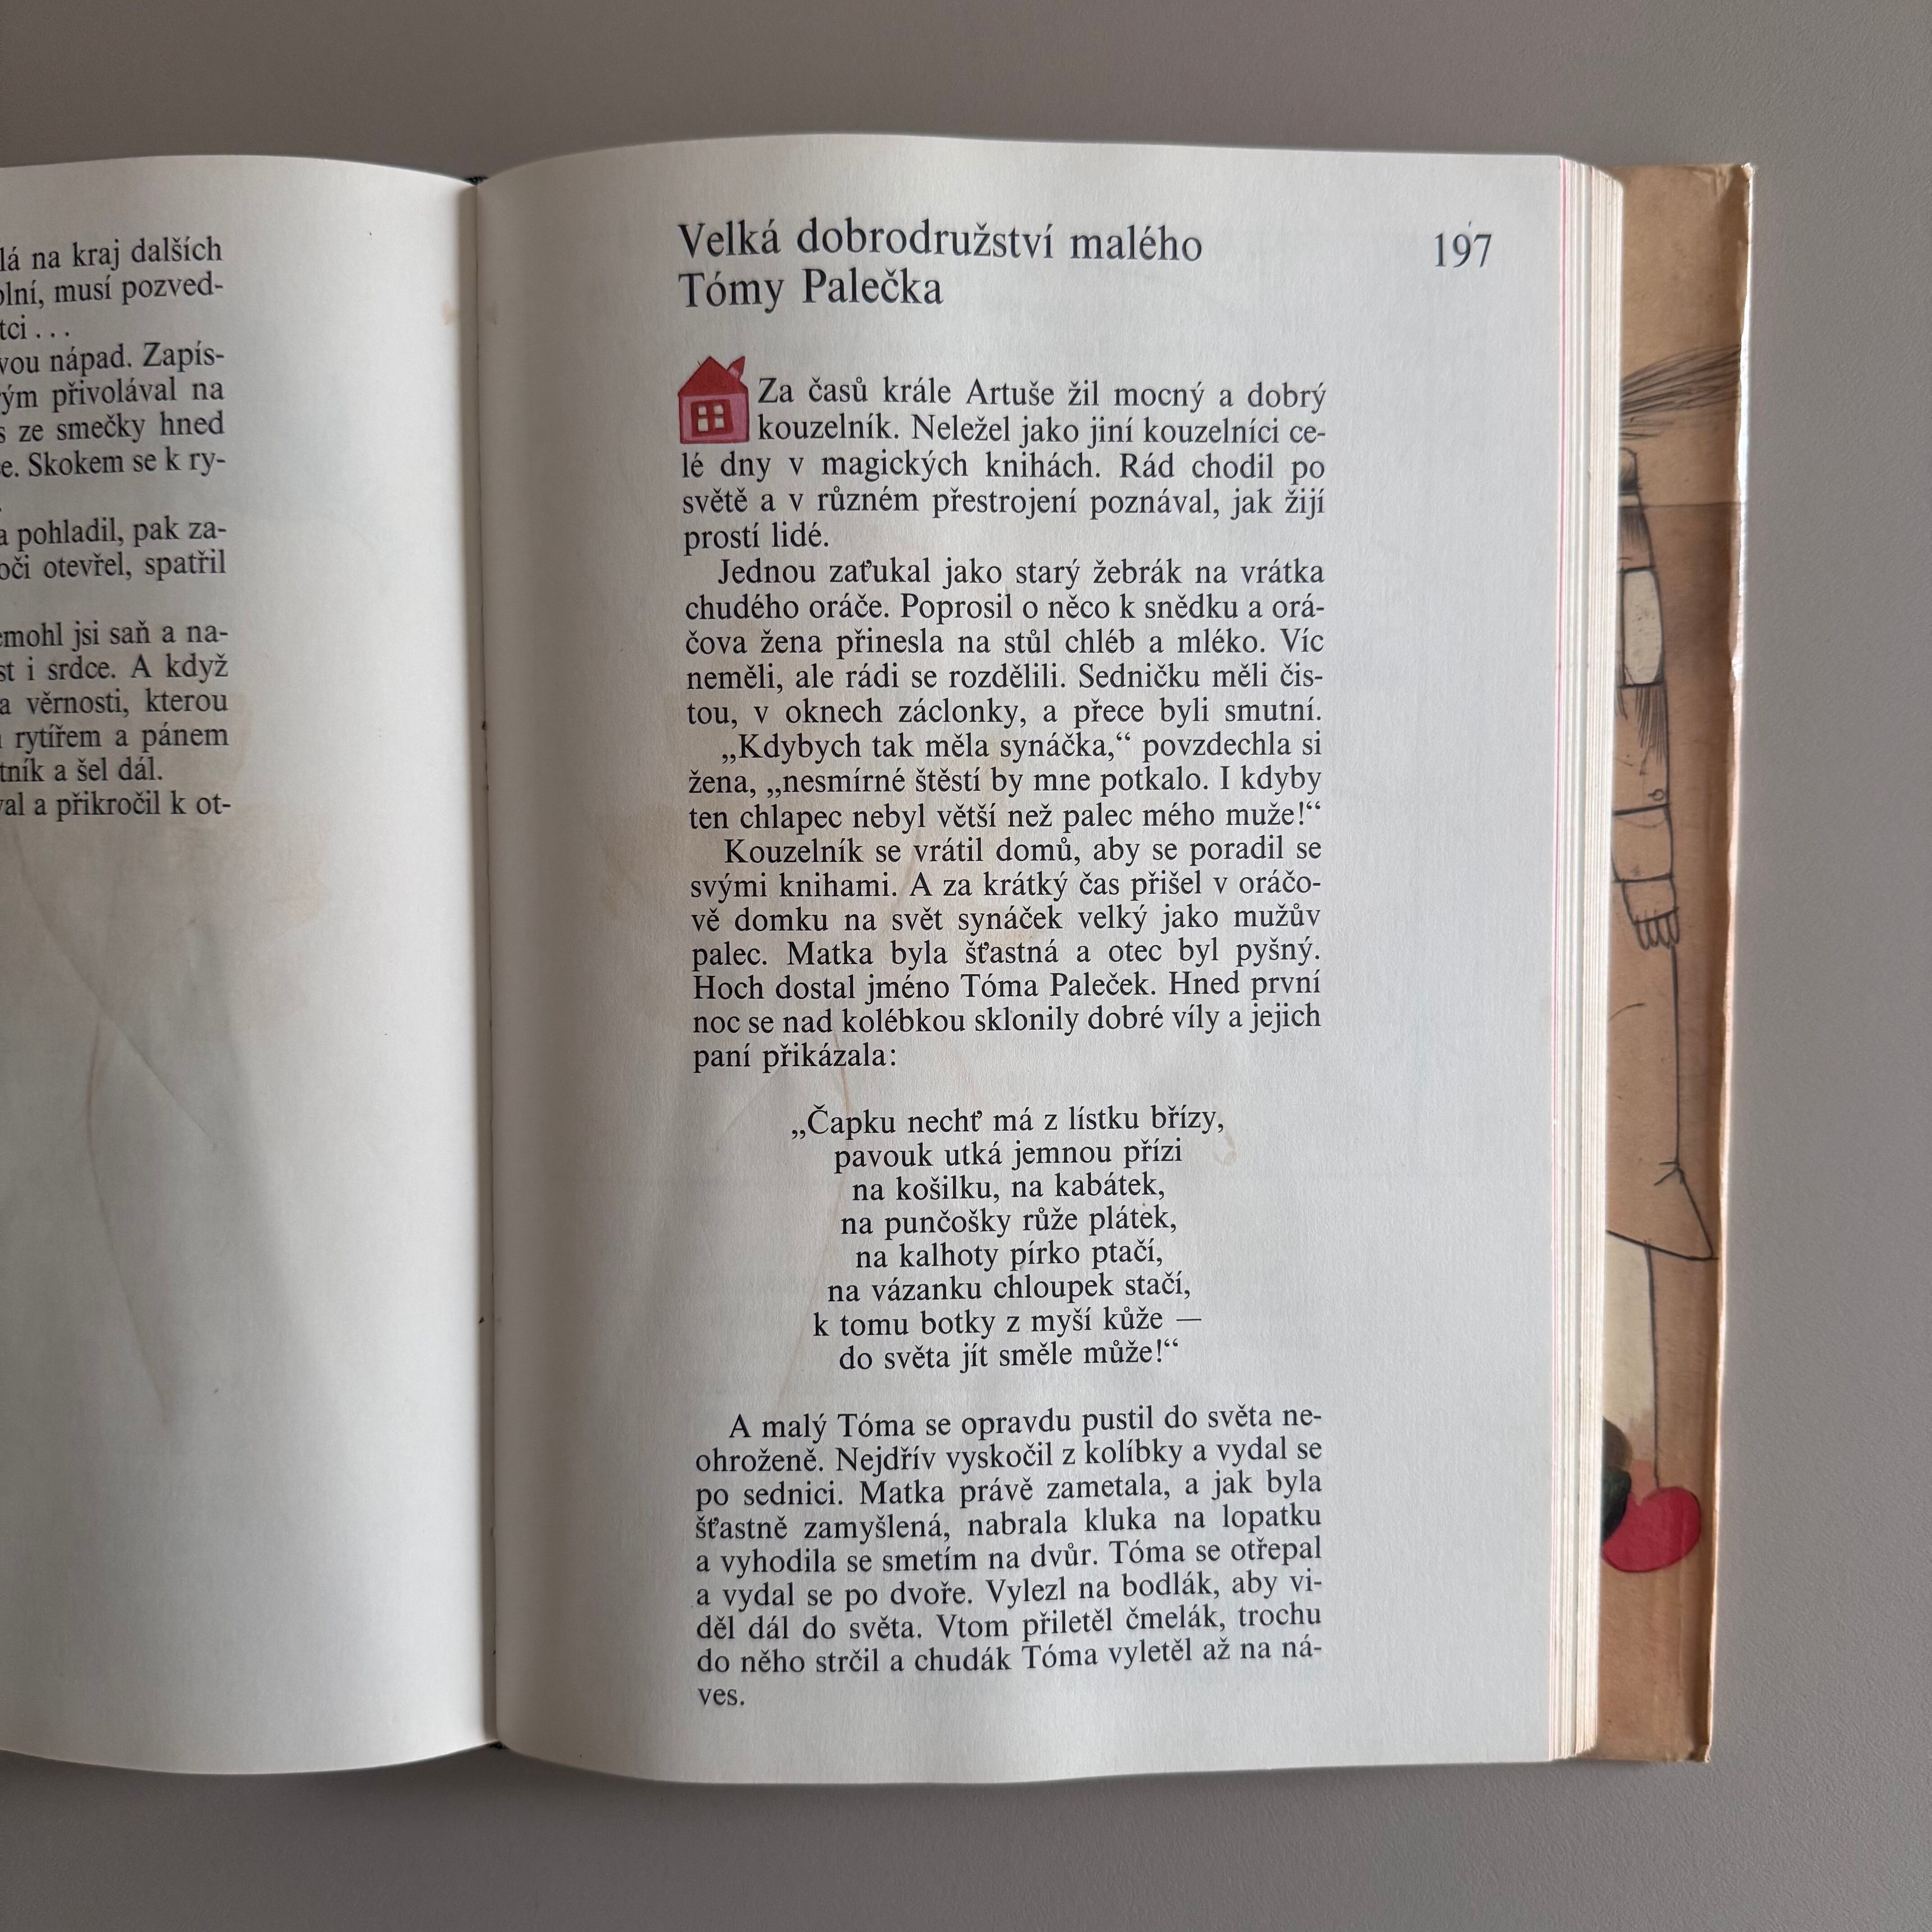 na kraj dalších
musí pozved-
nápad. Zapís-
přivolával na
ze smečky hned
Skokem se k ry-
pohladil, pak za-
otevřel, spatřil
jsi saň a na-
i srdce. A když
věrnosti, kterou
rytířem a pánem
a šel dál.
a přikročil k ot-
Velká dobrodružství malého
Tómy Palečka
197
Za časů krále Artuše žil mocný a dobrý
kouzelník. Neležel jako jiní kouzelníci ce-
lé dny v magických knihách. Rád chodil po
světě a v různém přestrojení poznával, jak žijí
prostí lidé.
Jednou zaťukal jako starý žebrák na vrátka
chudého oráče. Poprosil o něco k snědku a orá-
čova žena přinesla na stůl chléb a mléko. Víc
neměli, ale rádi se rozdělili. Sedničku měli čis-
tou, v oknech záclonky, a přece byli smutní.
„Kdybych tak měla synáčka,“ povzdechla si
žena, „nesmírné štěstí by mne potkalo. I kdyby
ten chlapec nebyl větší než palec mého muže!“
Kouzelník se vrátil domů, aby se poradil se
svými knihami. A za krátký čas přišel v oráčo-
vě domku na svět synáček velký jako mužův
palec. Matka byla šťastná a otec byl pyšný.
Hoch dostal jméno Tóma Paleček. Hned první
noc se nad kolébkou sklonily dobré víly a jejich
paní přikázala:
„Čapku nechť má z lístku břízy,
pavouk utká jemnou přízi
na košilku, na kabátek,
na punčošky růže plátek,
na kalhoty pírko ptačí,
na vázanku chloupek stačí,
k tomu botky z myší kůže —
do světa jít směle může!“
A malý Tóma se opravdu pustil do světa ne-
ohroženě. Nejdřív vyskočil z kolíbky a vydal se
po sednici. Matka právě zametala, a jak byla
šťastně zamyšlená, nabrala kluka na lopatku
a vyhodila se smetím na dvůr. Tóma se otřepal
a vydal se po dvoře. Vylezl na bodlák, aby vi-
děl dál do světa. Vtom přiletěl čmelák, trochu
do něho strčil a chudák Tóma vyletěl až na ná-
ves.